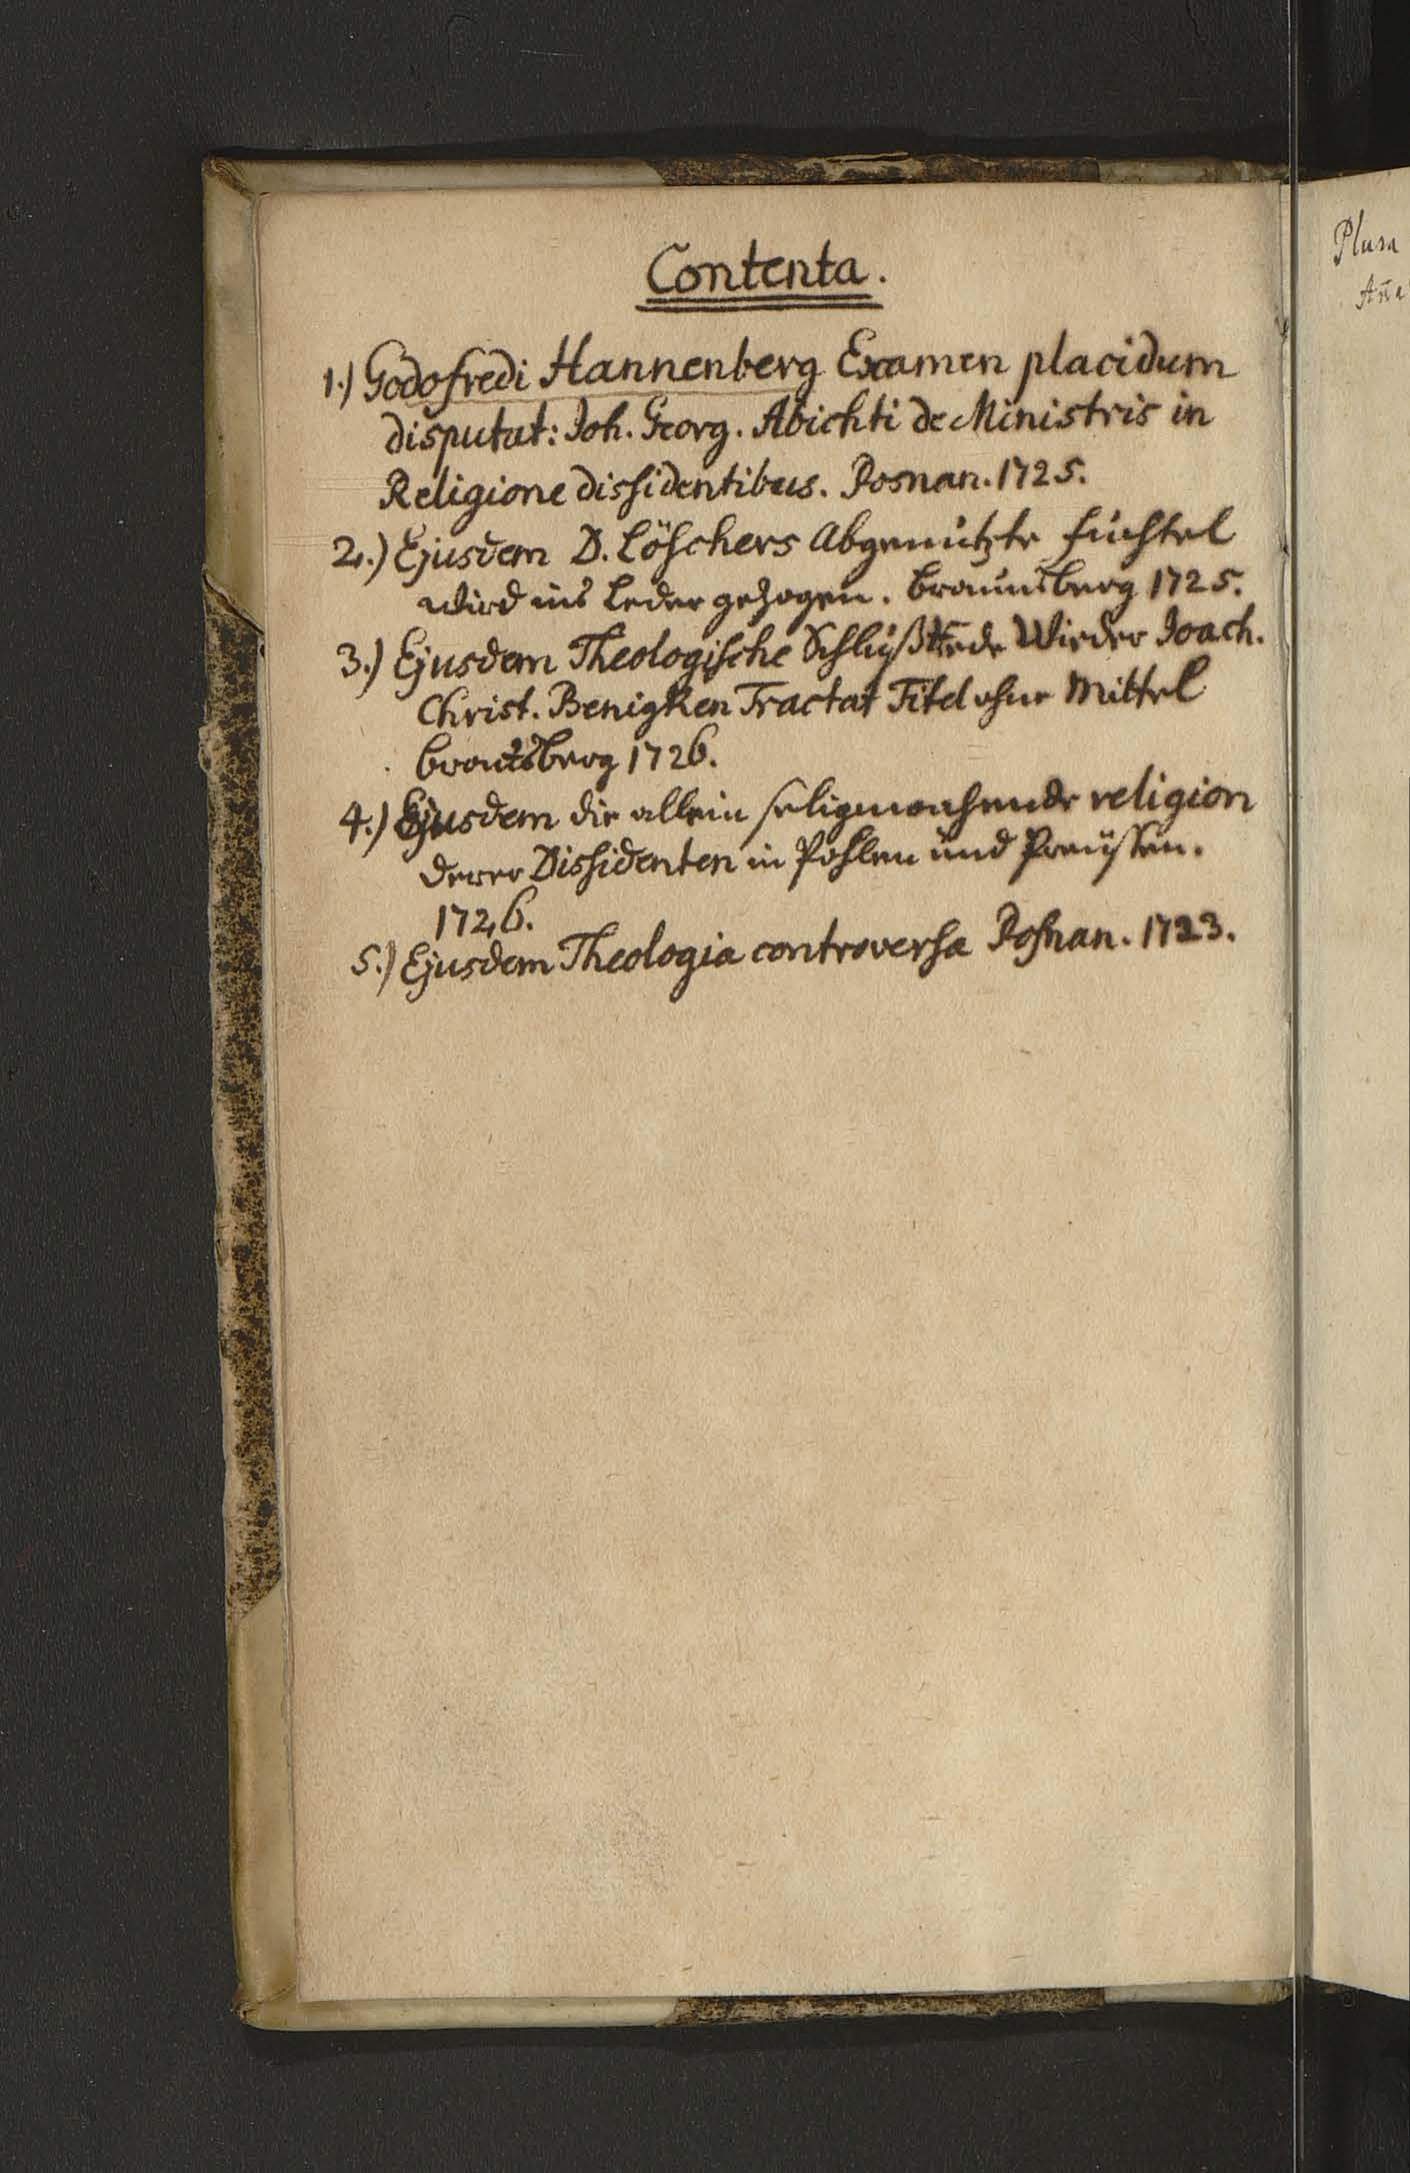 Contenta.
1.) Godofredi Hannenberg Examen placidum
disputat: Joh. Georg. Abichti de Ministris in
Religione dissidentibus. Posnan. 1725.
2.) Ejusdem D. Löschers Abgenützte fuchtel
wird ins Leder gezogen. Braunsberg 1725.
3.) Ejusdem Theologische Schlußrede Wieder Joach.
Christ. Benigken Tractat Titel ohne Mittel
1726.
4.) Ejusdem die allein seligmachende religion
derer Dissidenten in Pohlen und Preussen.
1726.
5.) Ejusdem Theologia controversa Posnan. 1723.
Plura